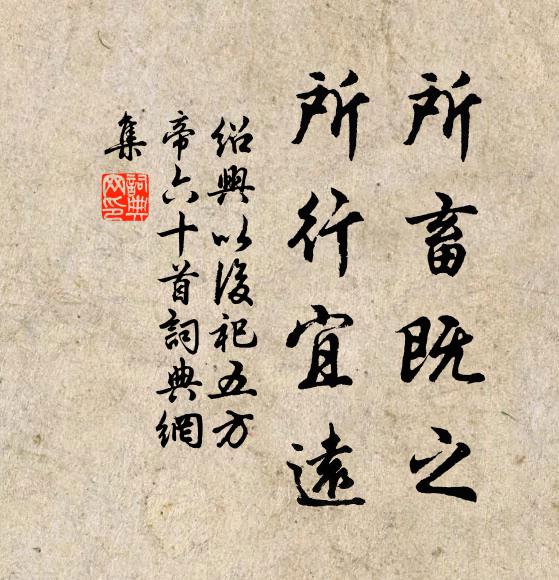 所畜既之
所行宜遠
紹興以後祀五方
帝六十首詞典網
集
詞典
網印